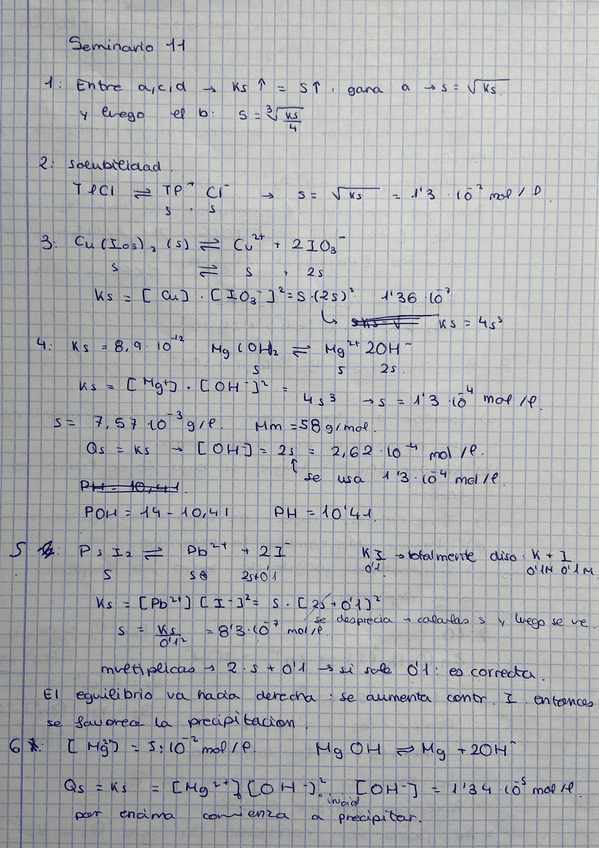 Seminario 11
1: Entre a,c,d → Ks ↑ = S↑. gana a → s = √Ks
y luego el b: S = ∛(Ks/4)
2: solubilidad.
TlCl ⇌ Tl⁺ Cl⁻ → s = √Ks = 1'3 · 10⁻² mol/l.
s s
3: Cu(IO3)2 (s) ⇌ Cu²⁺ + 2IO3⁻
s ⇌ s + 2s
Ks = [Cu] · [IO3⁻]² = S·(2s)² 1'36·10⁻⁷
↳ Ks = 4s³
4: Ks = 8,9·10⁻¹² Mg(OH)2 ⇌ Mg²⁺ 2OH⁻
s s 2s.
Ks = [Mg⁺] · [OH⁻]² = 4s³ → s = 1'3·10⁻⁴ mol/l.
s = 7,57·10⁻³ g/l. Mm = 58 g/mol.
Qs = Ks → [OH⁻] = 2s = 2,62·10⁻⁴ mol/l.
↑ se usa 1'3·10⁻⁴ mol/l
PH = 10,41
POH = 14 - 10,41 PH = 10'41.
5: PsI2 ⇌ Pb²⁺ + 2I⁻ KI → totalmente diso: K + I
s s 2s+0'1 0'1 0'1M 0'1M
Ks = [Pb²⁺] [I⁻]² = s · [2s + 0'1]²
se desprecia → calculas s y luego se ve.
s = Ks/0'1² = 8'3·10⁻⁷ mol/l
multiplicas → 2·s + 0'1 → si sale 0'1: es correcta.
El equilibrio va hacia derecha: se aumenta contr. I. entonces
se favorece la precipitacion.
6: [Mg²⁺] = 5·10⁻² mol/l. MgOH ⇌ Mg + 2OH⁻
Qs = Ks = [Mg²⁺] [OH⁻]². [OH⁻] = 1'34·10⁻⁵ mol/l.
inicial
por encima comienza a precipitar.